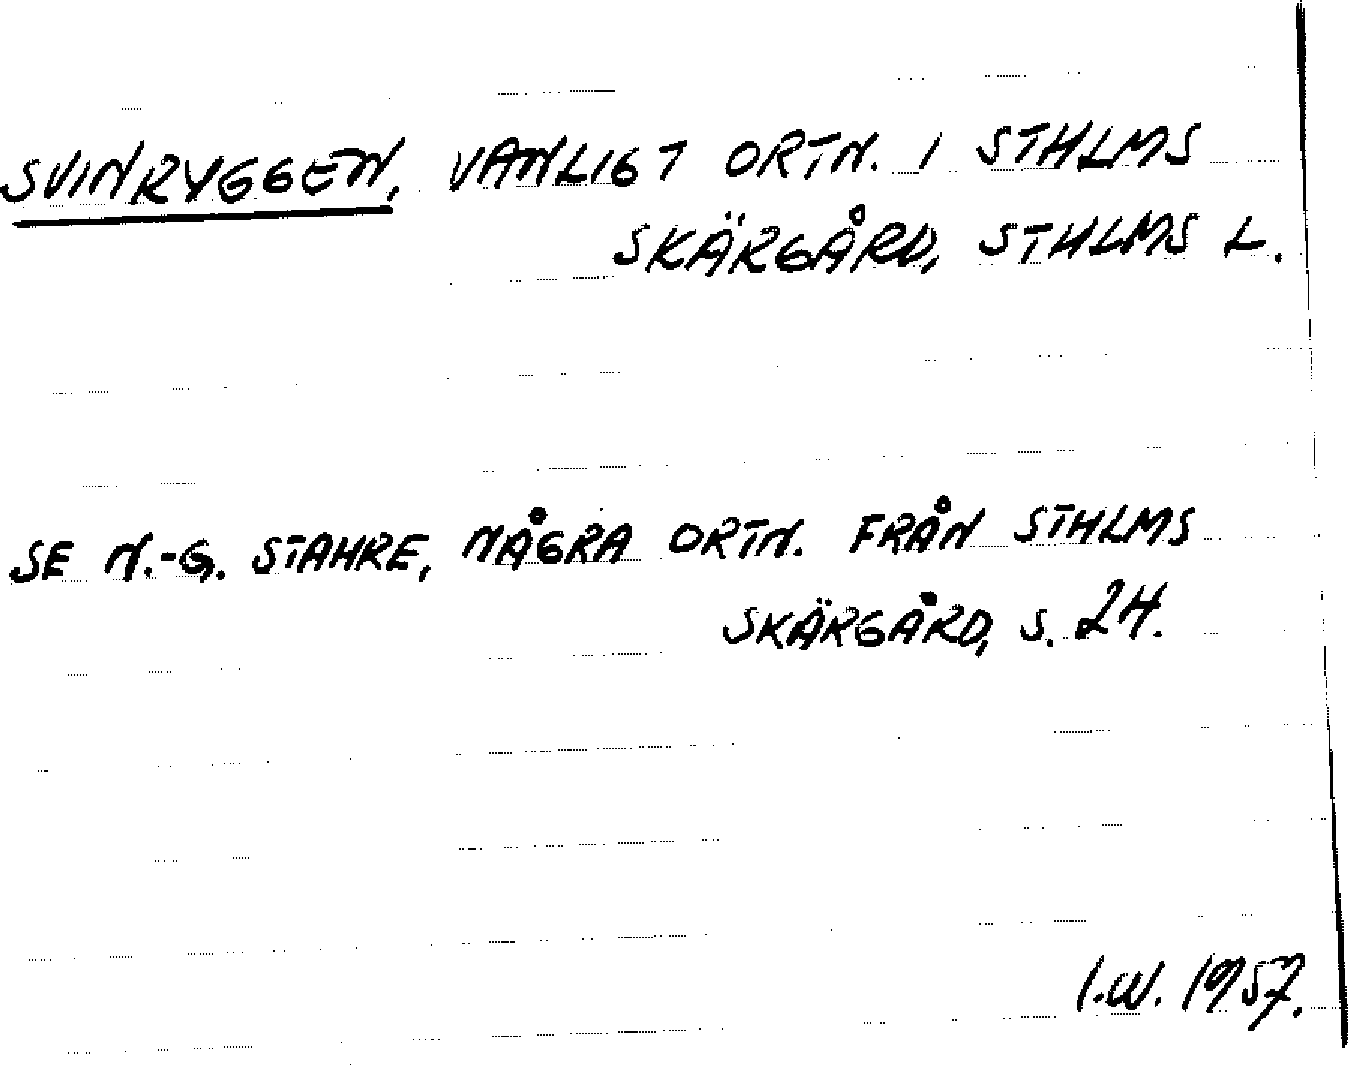 SVINRYGGEN, VANLIGT ORTN. I STHLMS
SKÄRGÅRD, STHLMS L.
SE N.-G. STAHRE, NÅGRA ORTN. FRÅN STHLMS
SKÄRGÅRD, S. 24.
I.W. 1957.